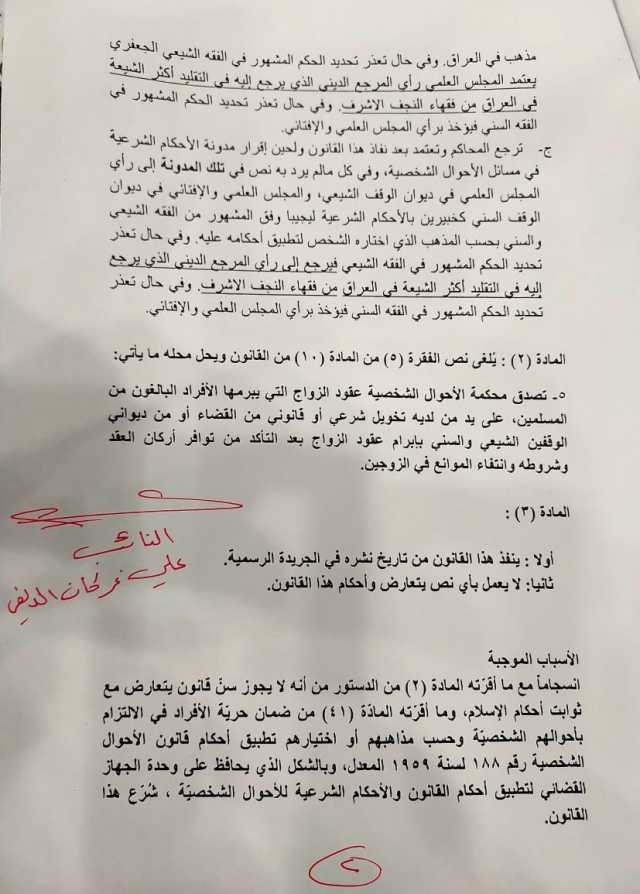 مذهب في العراق. وفي حال تعذر تحديد الحكم المشهور في الفقه الشيعي الجعفري
يعتمد المجلس العلمي رأي المرجع الديني الذي يرجع إليه في التقليد أكثر الشيعة
في العراق من فقهاء النجف الاشرف. وفي حال تعذر تحديد الحكم المشهور في
الفقه السني فيؤخذ برأي المجلس العلمي والإفتائي.
ج- ترجع المحاكم وتعتمد بعد نفاذ هذا القانون ولحين إقرار مدونة الأحكام الشرعية
في مسائل الأحوال الشخصية، وفي كل مالم يرد به نص في تلك المدونة إلى رأي
المجلس العلمي في ديوان الوقف الشيعي، والمجلس العلمي والإفتاني في ديوان
الوقف السني كخبيرين بالأحكام الشرعية ليجيبا وفق المشهور من الفقه الشيعي
والسني بحسب المذهب الذي اختاره الشخص لتطبيق أحكامه عليه. وفي حال تعذر
تحديد الحكم المشهور في الفقه الشيعي فيرجع إلى رأي المرجع الديني الذي يرجع
إليه في التقليد أكثر الشيعة في العراق من فقهاء النجف الاشرف. وفي حال تعذر
تحديد الحكم المشهور في الفقه السني فيؤخذ برأي المجلس العلمي والإفتائي.
المادة (٢) : يُلغى نص الفقرة (٥) من المادة (١٠) من القانون ويحل محله ما يأتي:
٥- تصدق محكمة الأحوال الشخصية عقود الزواج التي يبرمها الأفراد البالغون من
المسلمين، على يد من لديه تخويل شرعي أو قانوني من القضاء أو من ديواني
الوقفين الشيعي والسني بإبرام عقود الزواج بعد التأكد من توافر أركان العقد
وشروطه وانتفاء الموانع في الزوجين.
المادة (٣) :
النائب
علي
أولا : ينفذ هذا القانون من تاريخ نشره في الجريدة الرسمية.
ثانيا: لا يعمل بأي نص يتعارض وأحكام هذا القانون.
الأسباب الموجبة
انسجاماً مع ما أقرّته المادة (٢) من الدستور من أنه لا يجوز سنّ قانون يتعارض مع
ثوابت أحكام الإسلام، وما أقرّته المادّة (٤١) من ضمان حريّة الأفراد في الالتزام
بأحوالهم الشخصيّة وحسب مذاهبهم أو اختيارهم تطبيق أحكام قانون الأحوال
الشخصية رقم ١٨٨ لسنة ١٩٥٩ المعدل، وبالشكل الذي يحافظ على وحدة الجهاز
القضائي لتطبيق أحكام القانون والأحكام الشرعية للأحوال الشخصيّة ، شُرّع هذا
القانون.
٢